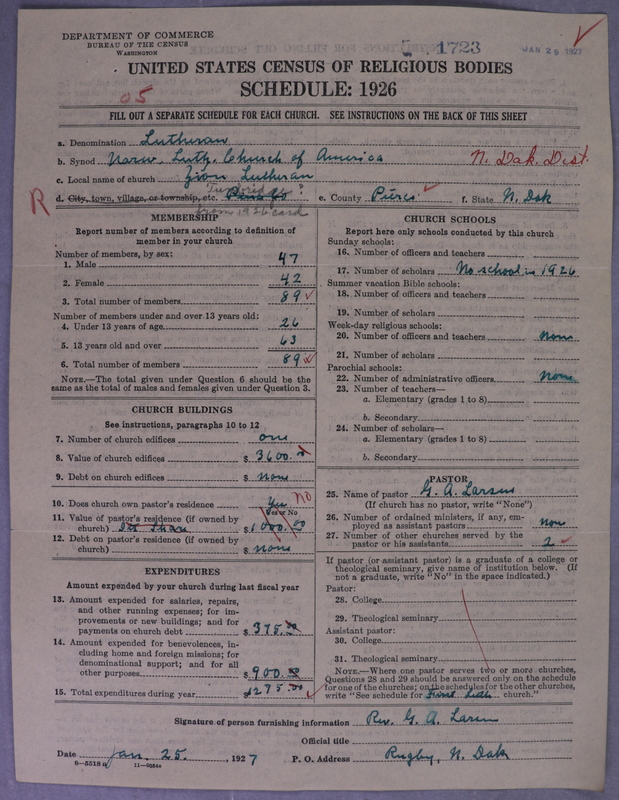 DEPARTMENT OF COMMERCE
BUREAU OF THE CENSUS
WASHINGTON
1723
JAN 29 1927
UNITED STATES CENSUS OF RELIGIOUS BODIES
SCHEDULE: 1926
05
FILL OUT A SEPARATE SCHEDULE FOR EACH CHURCH. SEE INSTRUCTIONS ON THE BACK OF THIS SHEET
a. Denomination Lutheran
b. Synod Norw. Luth. Church of America N. Dak. Dist.
c. Local name of church Zion Lutheran
R d. City, town, village, or township, etc. ? e. County Pierce f. State N. Dak
from 1926 card
MEMBERSHIP
Report number of members according to definition of
member in your church
Number of members, by sex:
1. Male 47
2. Female 42
3. Total number of members 89
Number of members under and over 13 years old:
4. Under 13 years of age 26
5. 13 years old and over 63
6. Total number of members 89
NOTE.—The total given under Question 6 should be the
same as the total of males and females given under Question 3.
CHURCH BUILDINGS
See instructions, paragraphs 10 to 12
7. Number of church edifices one
8. Value of church edifices $ 3600.
9. Debt on church edifices $ none
10. Does church own pastor's residence Yes no
Yes or No
11. Value of pastor's residence (if owned by
church) Its share $ 1000.00
12. Debt on pastor's residence (if owned by
church) $ none
EXPENDITURES
Amount expended by your church during last fiscal year
13. Amount expended for salaries, repairs,
and other running expenses; for im-
provements or new buildings; and for
payments on church debt $ 375.00
14. Amount expended for benevolences, in-
cluding home and foreign missions; for
denominational support; and for all
other purposes $ 900.00
15. Total expenditures during year $1275.00
CHURCH SCHOOLS
Report here only schools conducted by this church
Sunday schools:
16. Number of officers and teachers
17. Number of scholars No school in 1926
Summer vacation Bible schools:
18. Number of officers and teachers
19. Number of scholars
Week-day religious schools:
20. Number of officers and teachers None
21. Number of scholars
Parochial schools:
22. Number of administrative officers None
23. Number of teachers—
a. Elementary (grades 1 to 8)
b. Secondary
24. Number of scholars—
a. Elementary (grades 1 to 8)
b. Secondary
PASTOR
25. Name of pastor G. A. Larsen
(If church has no pastor, write "None")
26. Number of ordained ministers, if any, em-
ployed as assistant pastors none
27. Number of other churches served by the
pastor or his assistants 2
If pastor (or assistant pastor) is a graduate of a college or
theological seminary, give name of institution below. (If
not a graduate, write "No" in the space indicated.)
Pastor:
28. College
29. Theological seminary
Assistant pastor:
30. College
31. Theological seminary
NOTE.—Where one pastor serves two or more churches,
Questions 28 and 29 should be answered only on the schedule
for one of the churches; on the schedules for the other churches,
write "See schedule for First Luth church."
Signature of person furnishing information Rev. G. A. Larsen
Official title
Date Jan. 25, 1927 P. O. Address Rugby, N. Dak
8—5518a 11—9054